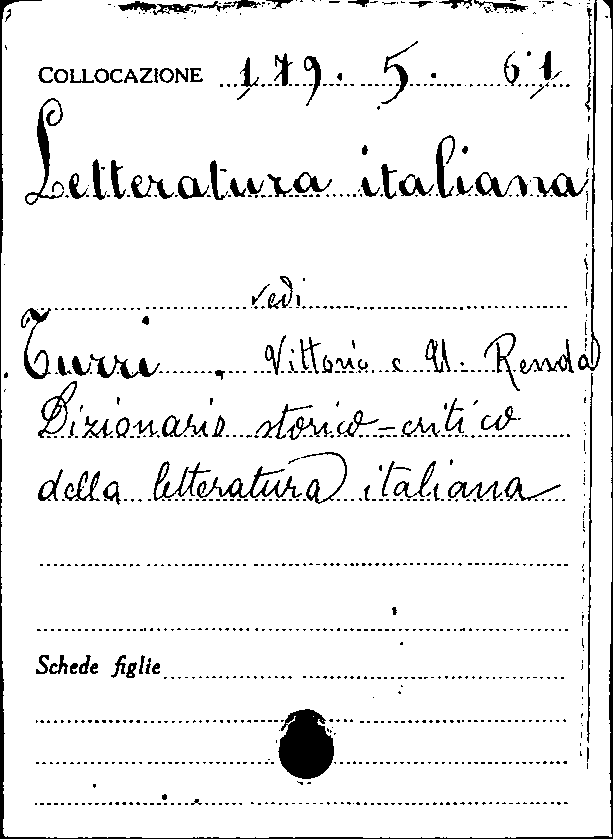 COLLOCAZIONE 179. 5. 61
Letteratura italiana
vedi
Turri, Vittorio e U. Renda
Dizionario storico-critico
della letteratura italiana
Schede figlie